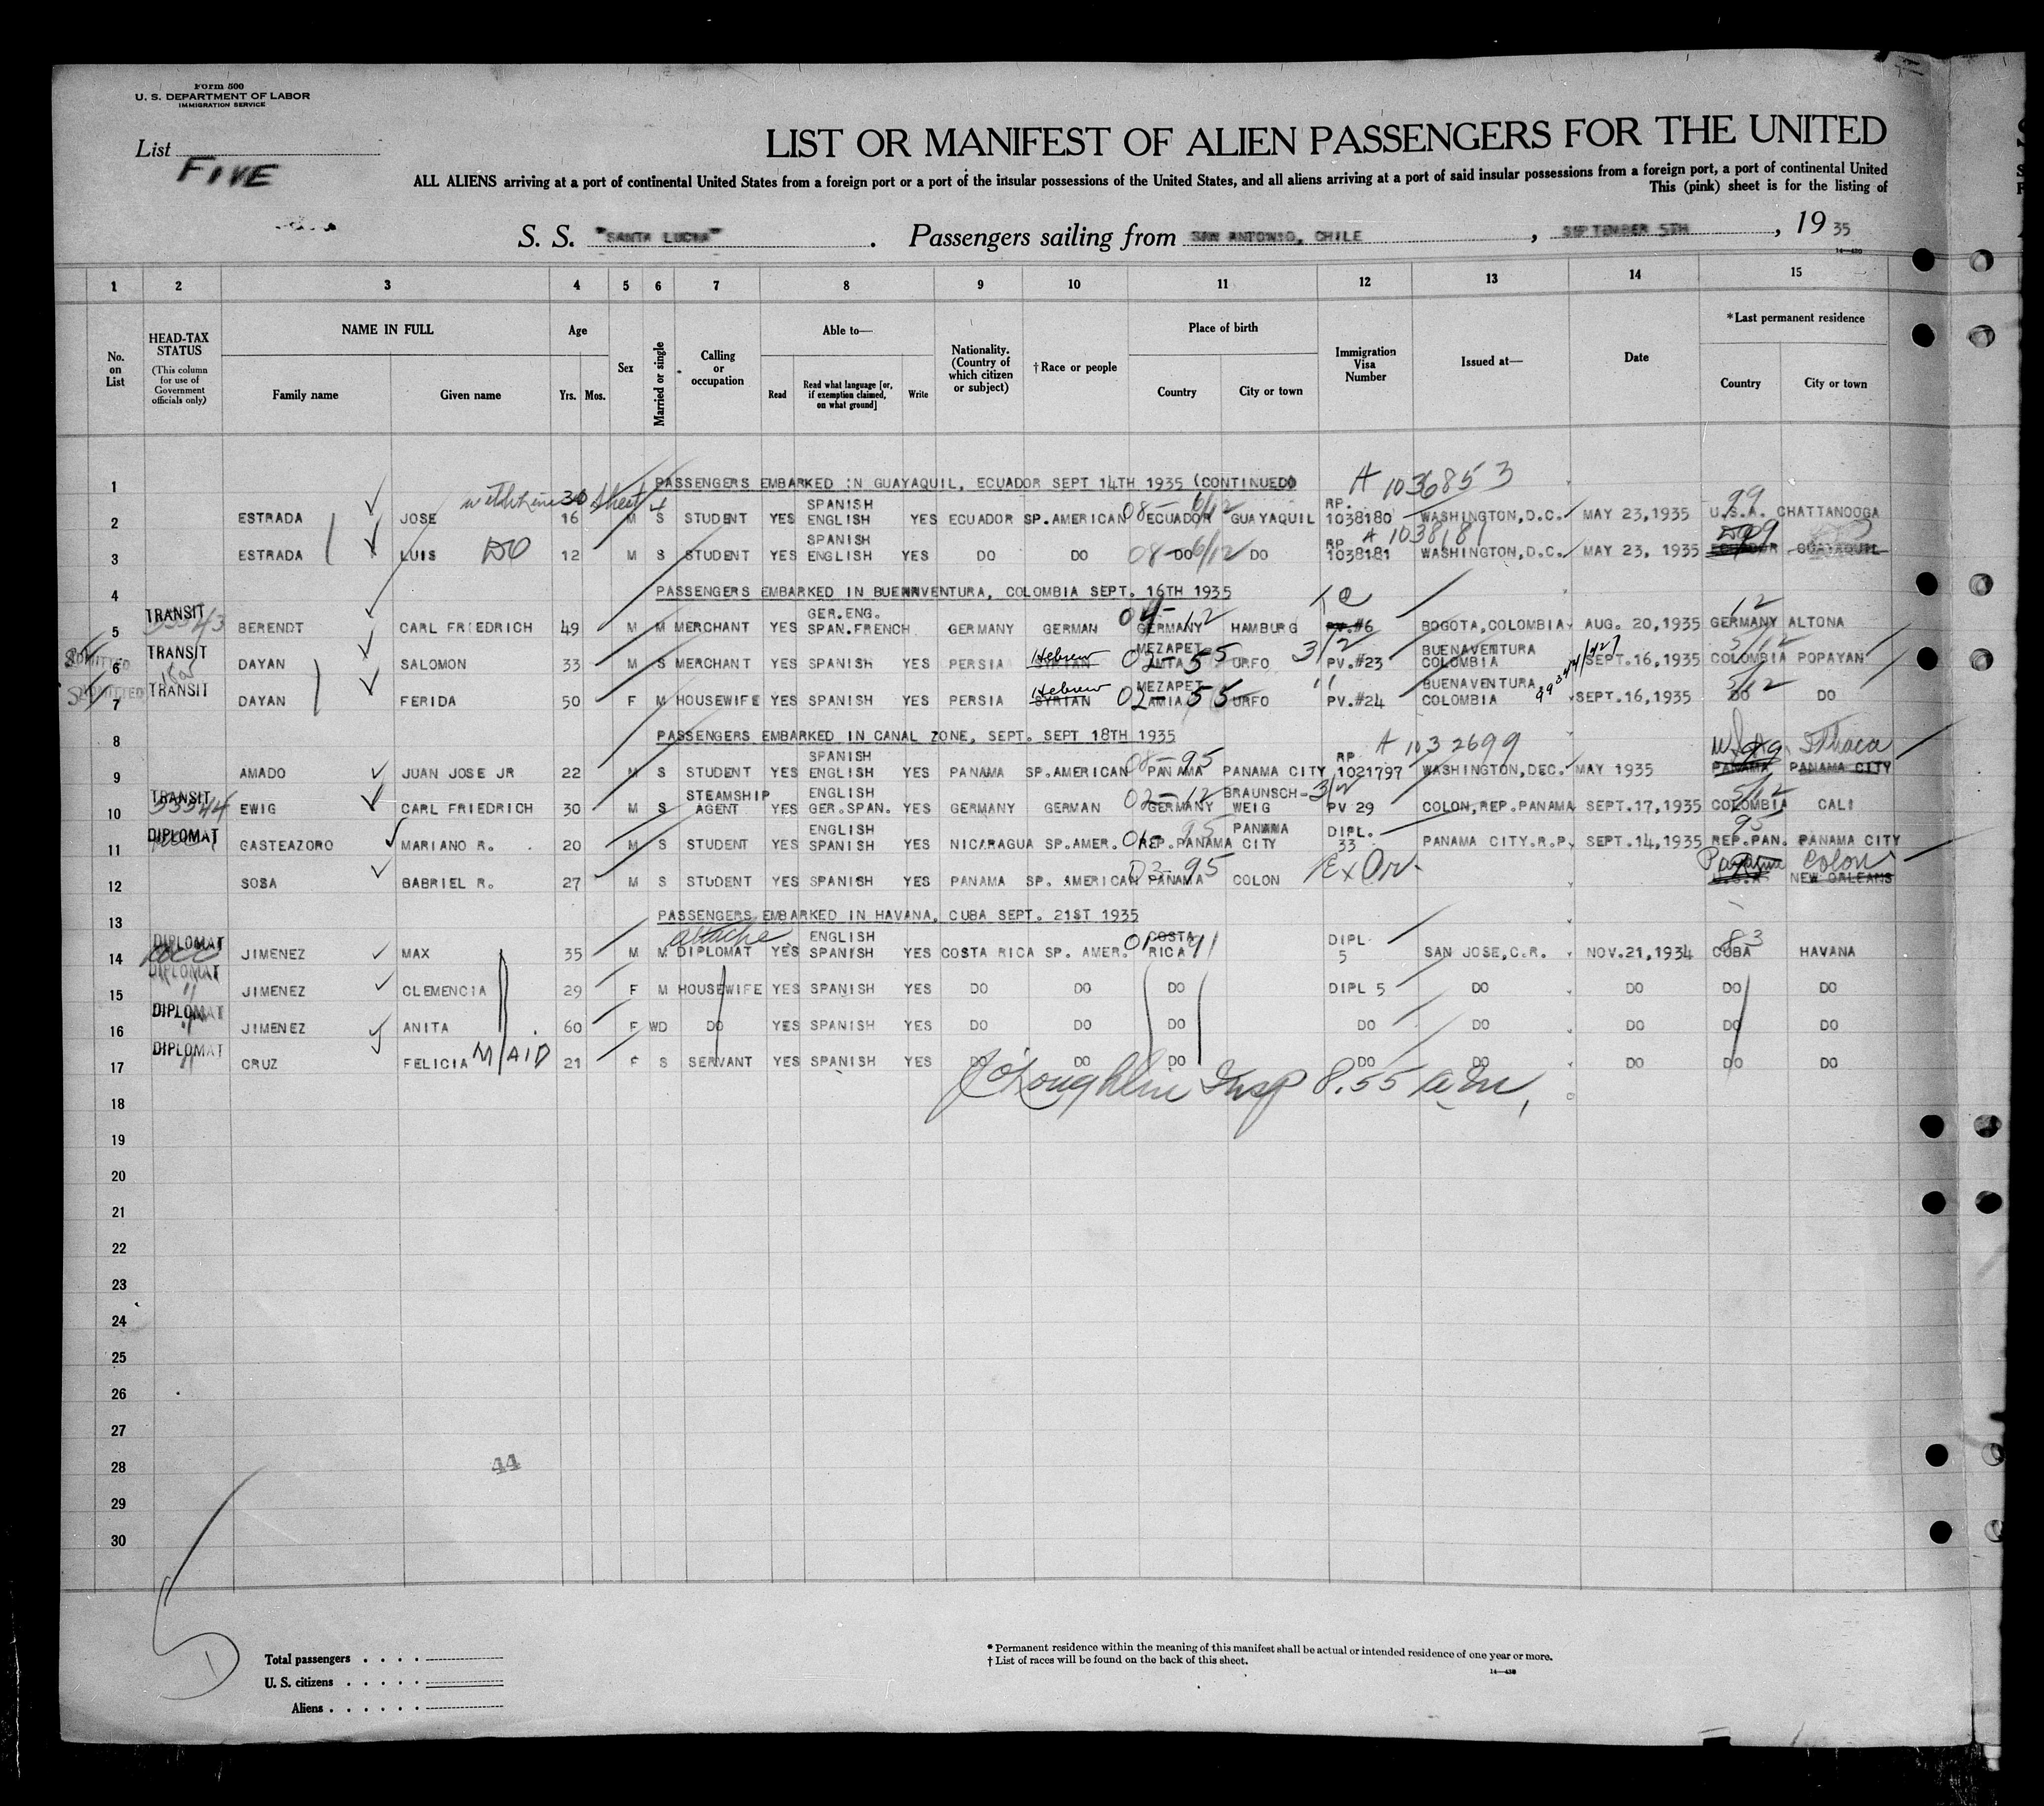 Form 500
U. S. DEPARTMENT OF LABOR
IMMIGRATION SERVICE
List FIVE
LIST OR MANIFEST OF ALIEN PASSENGERS FOR THE UNITED
ALL ALIENS arriving at a port of continental United States from a foreign port or a port of the insular possessions of the United States, and all aliens arriving at a port of said insular possessions from a foreign port, a port of continental United
This (pink) sheet is for the listing of
S. S. "SANTA LUCIA" . Passengers sailing from SAN ANTONIO, CHILE , SEPTEMBER 5TH , 19 35
1 2 3 4 5 6 7 8 9 10 11 12 13 14 15
No. on List
HEAD-TAX STATUS (This column for use of Government officials only)
NAME IN FULL
Family name Given name
Age
Yrs. Mos.
Sex
Married or single
Calling or occupation
Able to—
Read Read what language [or, if exemption claimed, on what ground] Write
Nationality. (Country of which citizen or subject)
† Race or people
Place of birth
Country City or town
Immigration Visa Number
Issued at—
Date
* Last permanent residence
Country City or town
1 PASSENGERS EMBARKED IN GUAYAQUIL, ECUADOR SEPT 14TH 1935 (CONTINUED) A 1036853
2 ESTRADA JOSE 16 M S STUDENT YES SPANISH ENGLISH YES ECUADOR SP.AMERICAN 08- ECUADOR 6/12 GUAYAQUIL RP. 1038180 WASHINGTON,D.C. MAY 23,1935 99 U.S.A. CHATTANOOGA
3 ESTRADA LUIS DO 12 M S STUDENT YES SPANISH ENGLISH YES DO DO 08- DO 6/12 DO RP A 1038181 1038181 WASHINGTON,D.C. MAY 23, 1935 ECUADOR GUAYAQUIL
4 PASSENGERS EMBARKED IN BUENAVENTURA, COLOMBIA SEPT. 16TH 1935
5 TRANSIT BERENDT CARL FRIEDRICH 49 M M MERCHANT YES GER.ENG. SPAN.FRENCH GERMANY GERMAN 04-12 GERMANY HAMBURG PV.#6 BOGOTA,COLOMBIA AUG. 20,1935 12 GERMANY ALTONA
6 ADMITTED TRANSIT DAYAN SALOMON 33 M S MERCHANT YES SPANISH YES PERSIA Hebrew SYRIAN 02-55 MEZAPET AMIA URFO 3/2 PV.#23 BUENAVENTURA COLOMBIA SEPT.16,1935 5/12 COLOMBIA POPAYAN
7 ADMITTED TRANSIT DAYAN FERIDA 50 F M HOUSEWIFE YES SPANISH YES PERSIA Hebrew SYRIAN 02-55 MEZAPET AMIA URFO " PV.#24 BUENAVENTURA COLOMBIA SEPT.16,1935 5/12 DO DO
8 PASSENGERS EMBARKED IN CANAL ZONE, SEPT. SEPT 18TH 1935 A 1032699
9 AMADO JUAN JOSE JR 22 M S STUDENT YES SPANISH ENGLISH YES PANAMA SP.AMERICAN 08-95 PANAMA PANAMA CITY RP 1021797 WASHINGTON,DEC. MAY 1935 99 Ithaca PANAMA PANAMA CITY
10 TRANSIT 33344 EWIG CARL FRIEDRICH 30 M S STEAMSHIP AGENT YES ENGLISH GER.SPAN. YES GERMANY GERMAN 02-12 GERMANY BRAUNSCH- WEIG PV 29 COLON,REP.PANAMA SEPT.17,1935 5/12 COLOMBIA CALI
11 DIPLOMAT GASTEAZORO MARIANO R. 20 M S STUDENT YES ENGLISH SPANISH YES NICARAGUA SP.AMER. 95 REP.PANAMA PANAMA CITY DIPL. 33 PANAMA CITY.R.P. SEPT.14,1935 95 REP.PAN. PANAMA CITY
12 SOSA GABRIEL R. 27 M S STUDENT YES SPANISH YES PANAMA SP. AMERICAN 03-95 PANAMA COLON Panama Colon NEW ORLEANS
13 PASSENGERS EMBARKED IN HAVANA, CUBA SEPT. 21ST 1935
14 DIPLOMAT JIMENEZ MAX 35 M M attache DIPLOMAT YES ENGLISH SPANISH YES COSTA RICA SP. AMER. 01-91 COSTA RICA DIPL 5 SAN JOSE,C.R. NOV.21,1934 83 CUBA HAVANA
15 DIPLOMAT " JIMENEZ CLEMENCIA 29 F M HOUSEWIFE YES SPANISH YES DO DO DO DIPL 5 DO DO DO DO
16 DIPLOMAT " JIMENEZ ANITA 60 F WD DO YES SPANISH YES DO DO DO DO DO DO DO DO
17 DIPLOMAT " CRUZ FELICIA MAID 21 F S SERVANT YES SPANISH YES DO DO DO DO DO DO DO DO
J O'Loughlin Insp 8.55 a.m.
18
19
20
21
22
23
24
25
26
27
28
29
30
44
Total passengers
U. S. citizens
Aliens
* Permanent residence within the meaning of this manifest shall be actual or intended residence of one year or more.
† List of races will be found on the back of this sheet.